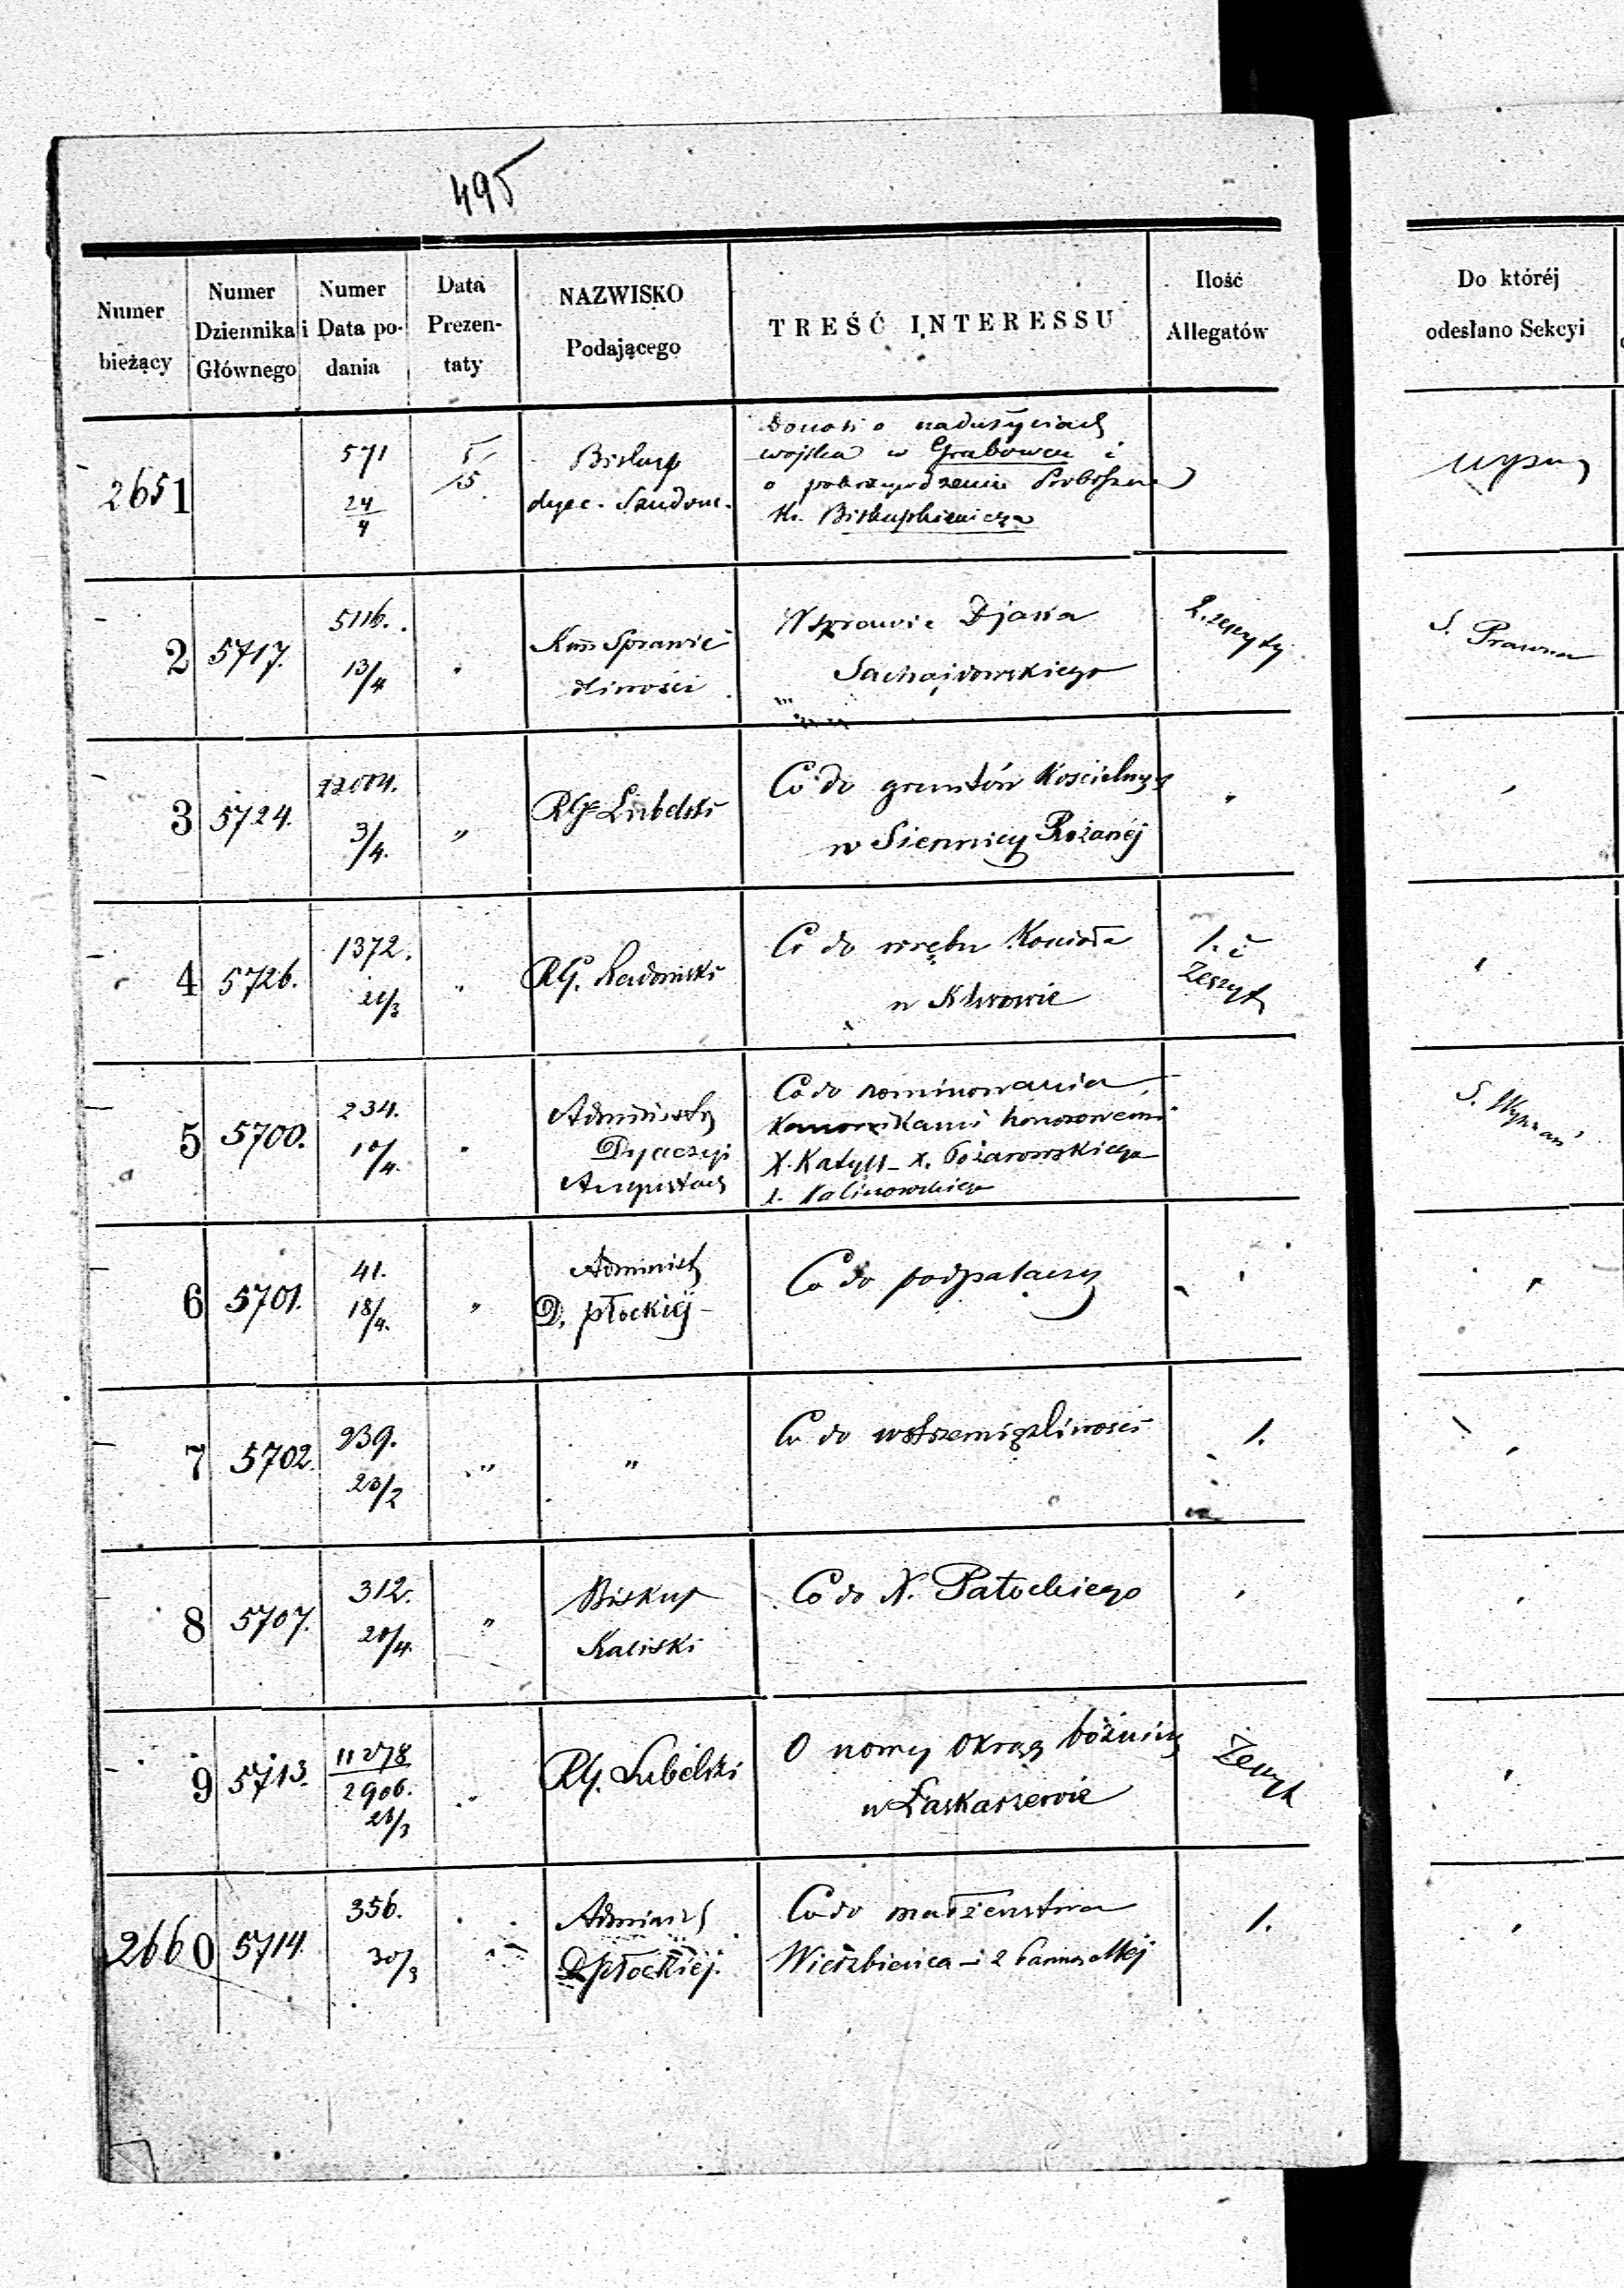 495
Numer bieżący
Numer Dziennika Głównego
Numer i Data podania
Data Prezentaty
NAZWISKO Podającego
TREŚĆ INTERESSU
Ilość Allegatów
Do któréj odesłano Sekcyi
2651
571
24/4
5/5
Biskup
dyec. Sandom.
Donosi o nadużyciach
wojska w Grabowcu i
o pokrzywdzeniu Proboszcza
Ks. Biskupskiewicza
Wyzn
2 5717.
5116.
13/4
Kom Sprawie
dliwości
W sprawie Djaka
Sachajdowskiego
2. zeszyty
S. Prawna
3 5724.
3/4.
"
RG Lubelski
Co do gruntów Kościelnych
w Siennicy Rożanéj
4 5726.
1372.
21/3
RG. Radomski
Co do wrębu Kościoła
w Klwowie
1. i
Zeszyt
5 5700.
234.
10/4.
Administr
Dyecezyi
Augustows
Co do nominowania
Kanonikami honorowemi
X. Katyll - X. Pożarowskiego
X. Kalinowskiego
S. Wyznań
6 5701.
41.
18/4.
"
Administr
D. płockiéj -
Co do podpałaczy
7 5702.
939.
23/2
"
"
Co do wstrzemięźliwości
1.
8 5707.
312.
20/4.
"
Biskup
Kaliski
Co do X. Patockiego
9 5713.
11278
2906.
28/3
"
RG. Lubelski
O nowy Okrąg bóżniczy
w Łaskarzewie
Zeszyt
2660 5714.
356.
30/3
Administ
D płockiéj.
Co do małżeństwa
Wierzbienica - i 2
1.